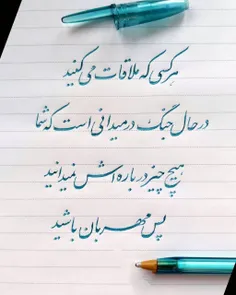 هر کسی که ملاقات می کنید
در حال جنگ در میدانی است که شما
هیچ چیز درباره اش نمیدانید
پس مهربان باشید